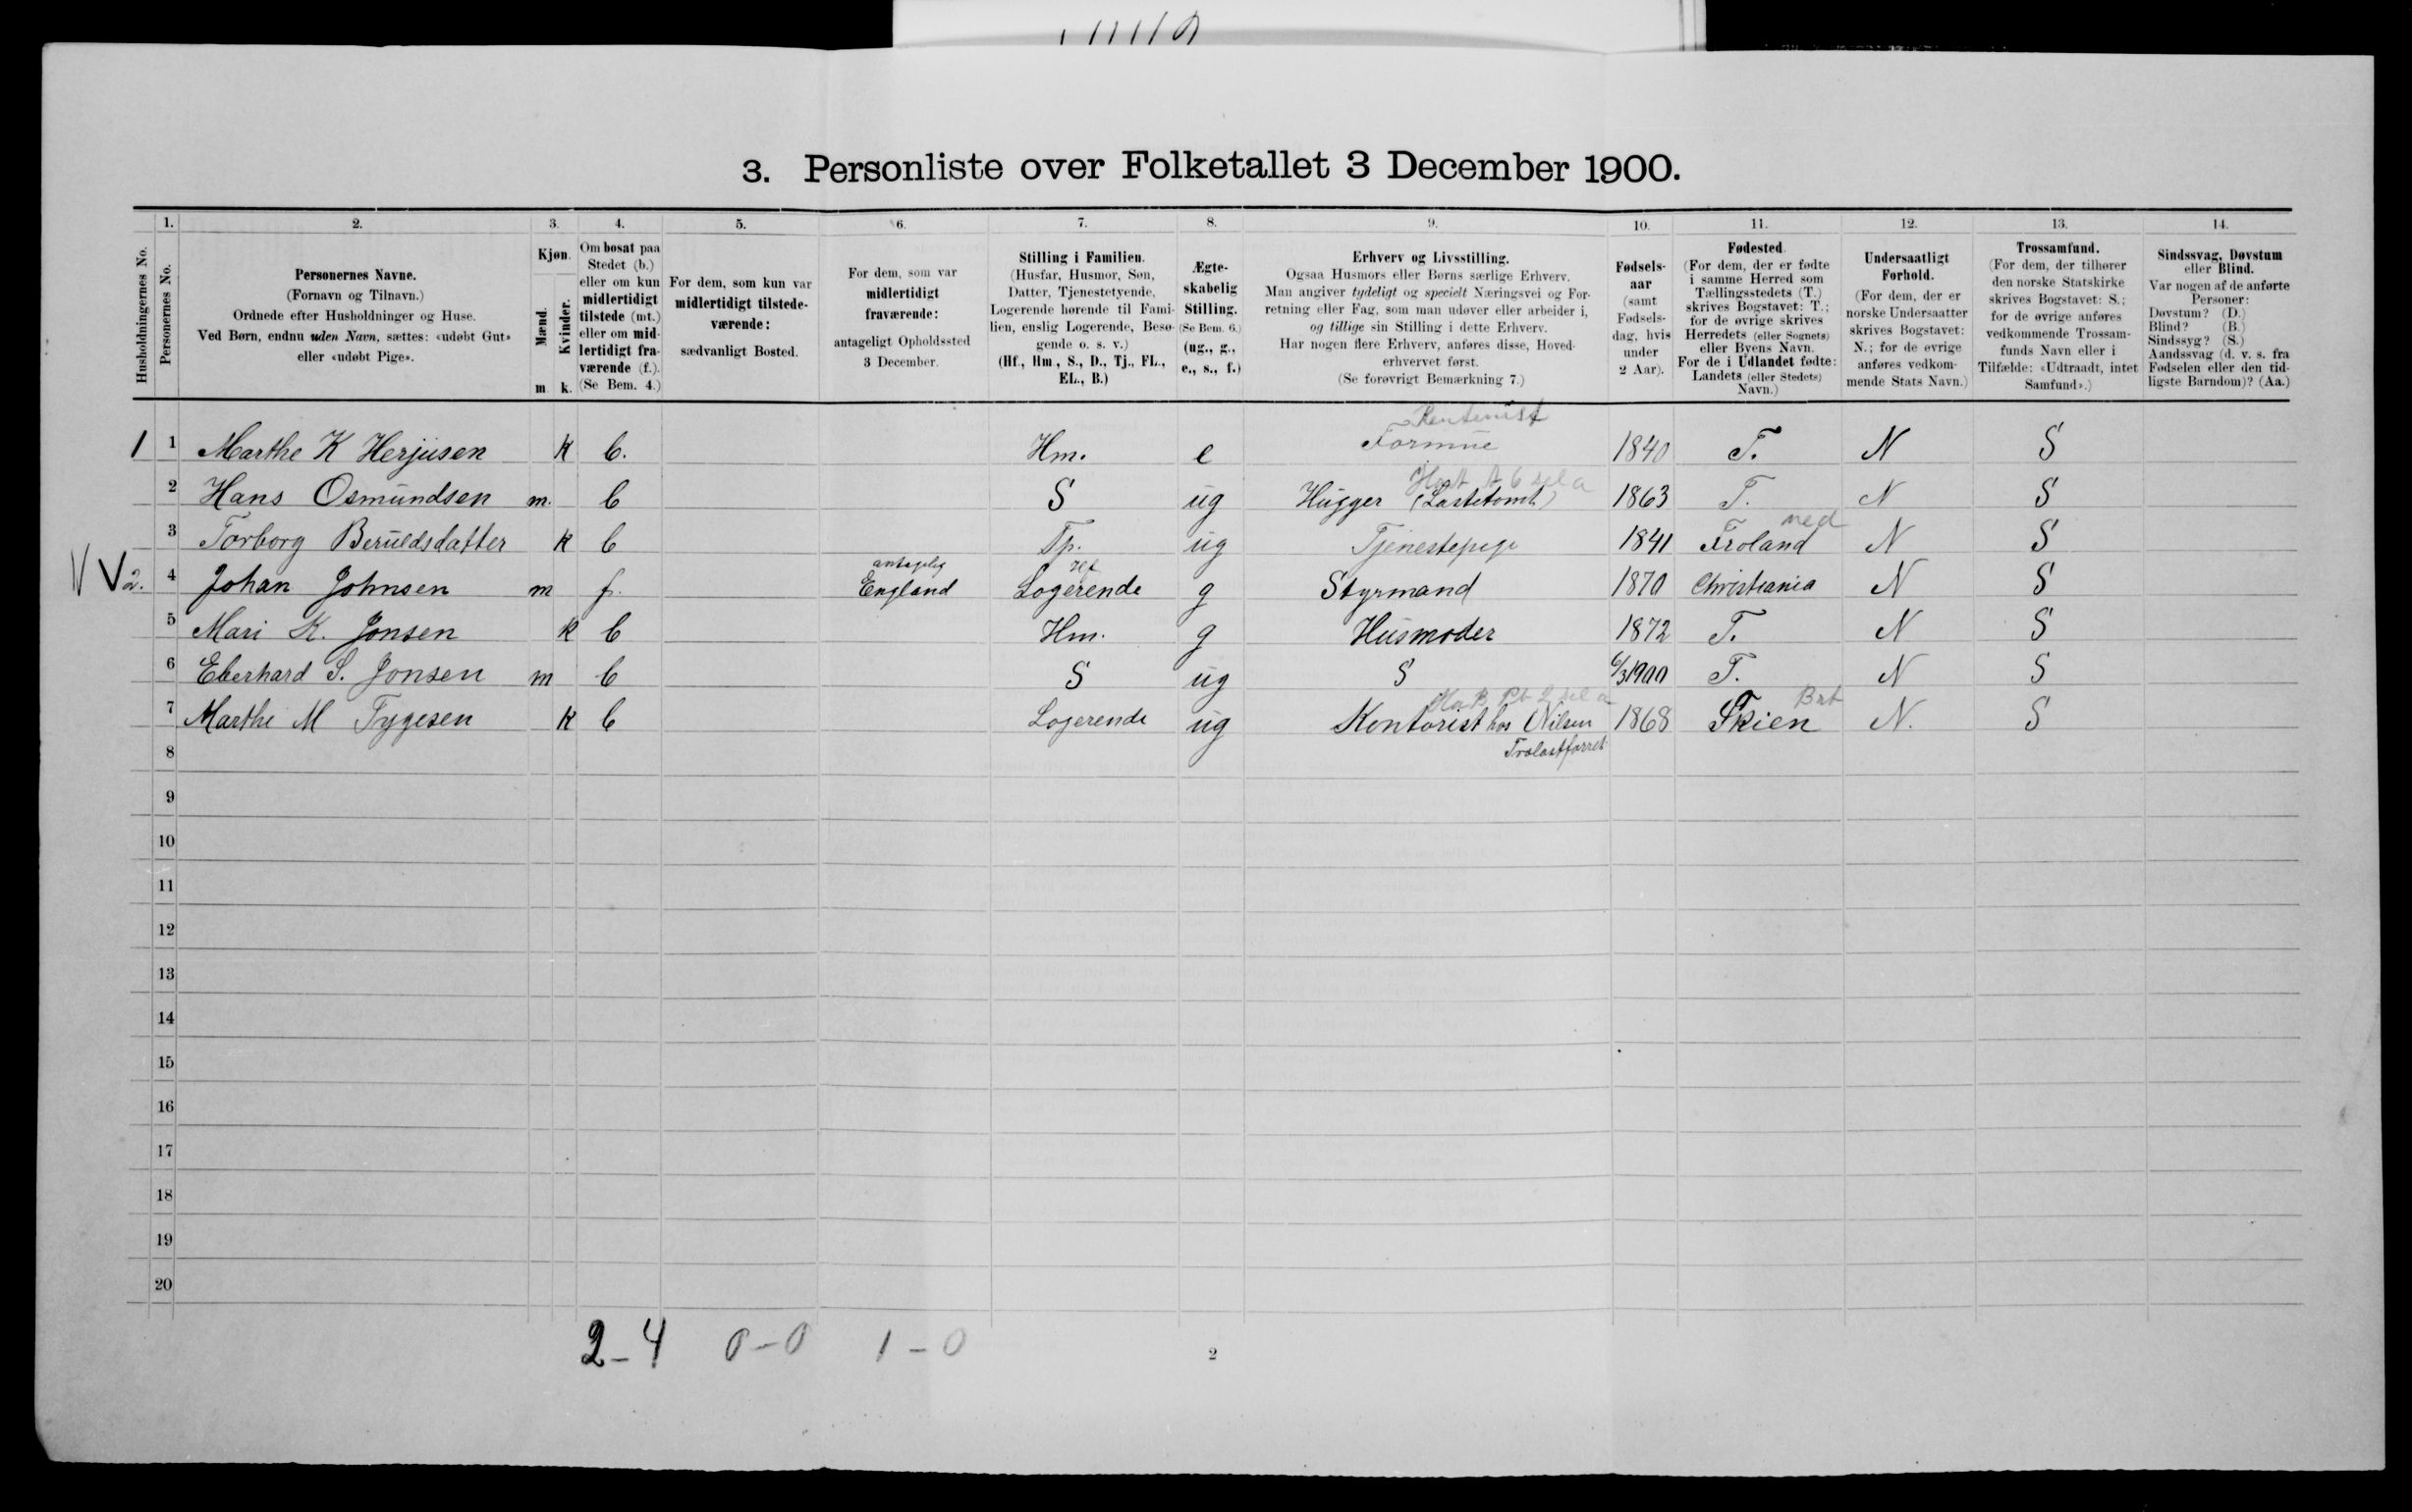 3. Personliste over Folketallet 3 December 1900.
Husholdningernes No.
1.
Personernes No.
2.
Personernes Navne.
(Fornavn og Tilnavn.)
Ordnede efter Husholdninger og Huse.
Ved Børn, endnu uden Navn, sættes: «udøbt Gut»
eller «udøbt Pige».
3.
Kjøn.
Mænd.
Kvinder.
m. k.
4.
Om bosat paa
Stedet (b.)
eller om kun
midlertidigt
tilstede (mt.)
eller om mid-
lertidigt fra-
værende (f.).
(Se Bem. 4.)
5.
For dem, som kun var
midlertidigt tilstede-
værende:
sædvanligt Bosted.
6.
For dem, som var
midlertidigt
fraværende:
antageligt Opholdssted
3 December.
7.
Stilling i Familien.
(Husfar, Husmor, Søn,
Datter, Tjenestetyende,
Logerende hørende til Fami-
lien, enslig Logerende, Besø-
gende o. s. v.)
(Hf., Hm., S., D., Tj., FL.,
EL., B.)
8.
Ægte-
skabelig
Stilling.
(Se Bem. 6.)
(ug., g.,
e., s., f.)
9.
Erhverv og Livsstilling.
Ogsaa Husmors eller Børns særlige Erhverv.
Man angiver tydeligt og specielt Næringsvei og For-
retning eller Fag, som man udøver eller arbeider i,
og tillige sin Stilling i dette Erhverv.
Har nogen flere Erhverv, anføres disse, Hoved-
erhvervet først.
(Se forøvrigt Bemærkning 7.)
10.
Fødsels-
aar
(samt
Fødsels-
dag, hvis
under
2 Aar).
11.
Fødested.
(For dem, der er fødte
i samme Herred som
Tællingsstedets (T.)
skrives Bogstavet: T.;
for de øvrige skrives
Herredets (eller Sognets)
eller Byens Navn.
For de i Udlandet fødte:
Landets (eller Stedets)
Navn.)
12.
Undersaatligt
Forhold.
(For dem, der er
norske Undersaatter
skrives Bogstavet:
N.; for de øvrige
anføres vedkom-
mende Stats Navn.)
13.
Trossamfund.
(For dem, der tilhører
den norske Statskirke
skrives Bogstavet: S.;
for de øvrige anføres
vedkommende Trossam-
funds Navn eller i
Tilfælde: «Udtraadt, intet
Samfund».)
14.
Sindssvag, Døvstum
eller Blind.
Var nogen af de anførte
Personer:
Døvstum? (D.)
Blind? (B.)
Sindssyg? (S.)
Aandssvag (d. v. s. fra
Fødselen eller den tid-
ligste Barndom)? (Aa.)
Rentenist
1 1 Marthe K Herjusen k b. Hm. e Formue 1840 T. N S
2 Hans Osmundsen m. b S ug Hugger (Lastetomt) 1863 T. N S
ned
3 Torborg Beruldsdatter k b Tp. ug Tjenestepige 1841 Froland N S
antagelig
2. 4 Johan Johnsen m f. England Logerende g Styrmand 1870 Christiania N S
5 Mari K. Jonsen k b Hm. g Husmoder 1872 T. N S
6 Eberhard S. Jonsen m b S ug S 6/3 1900 T. N S
Brt
7 Marthe M Tygesen k b Logerende ug Kontorist hos Nilsen 1868 Skien N. S
8
9
10
11
12
13
14
15
16
17
18
19
20
2-4 0-0 1-0
2